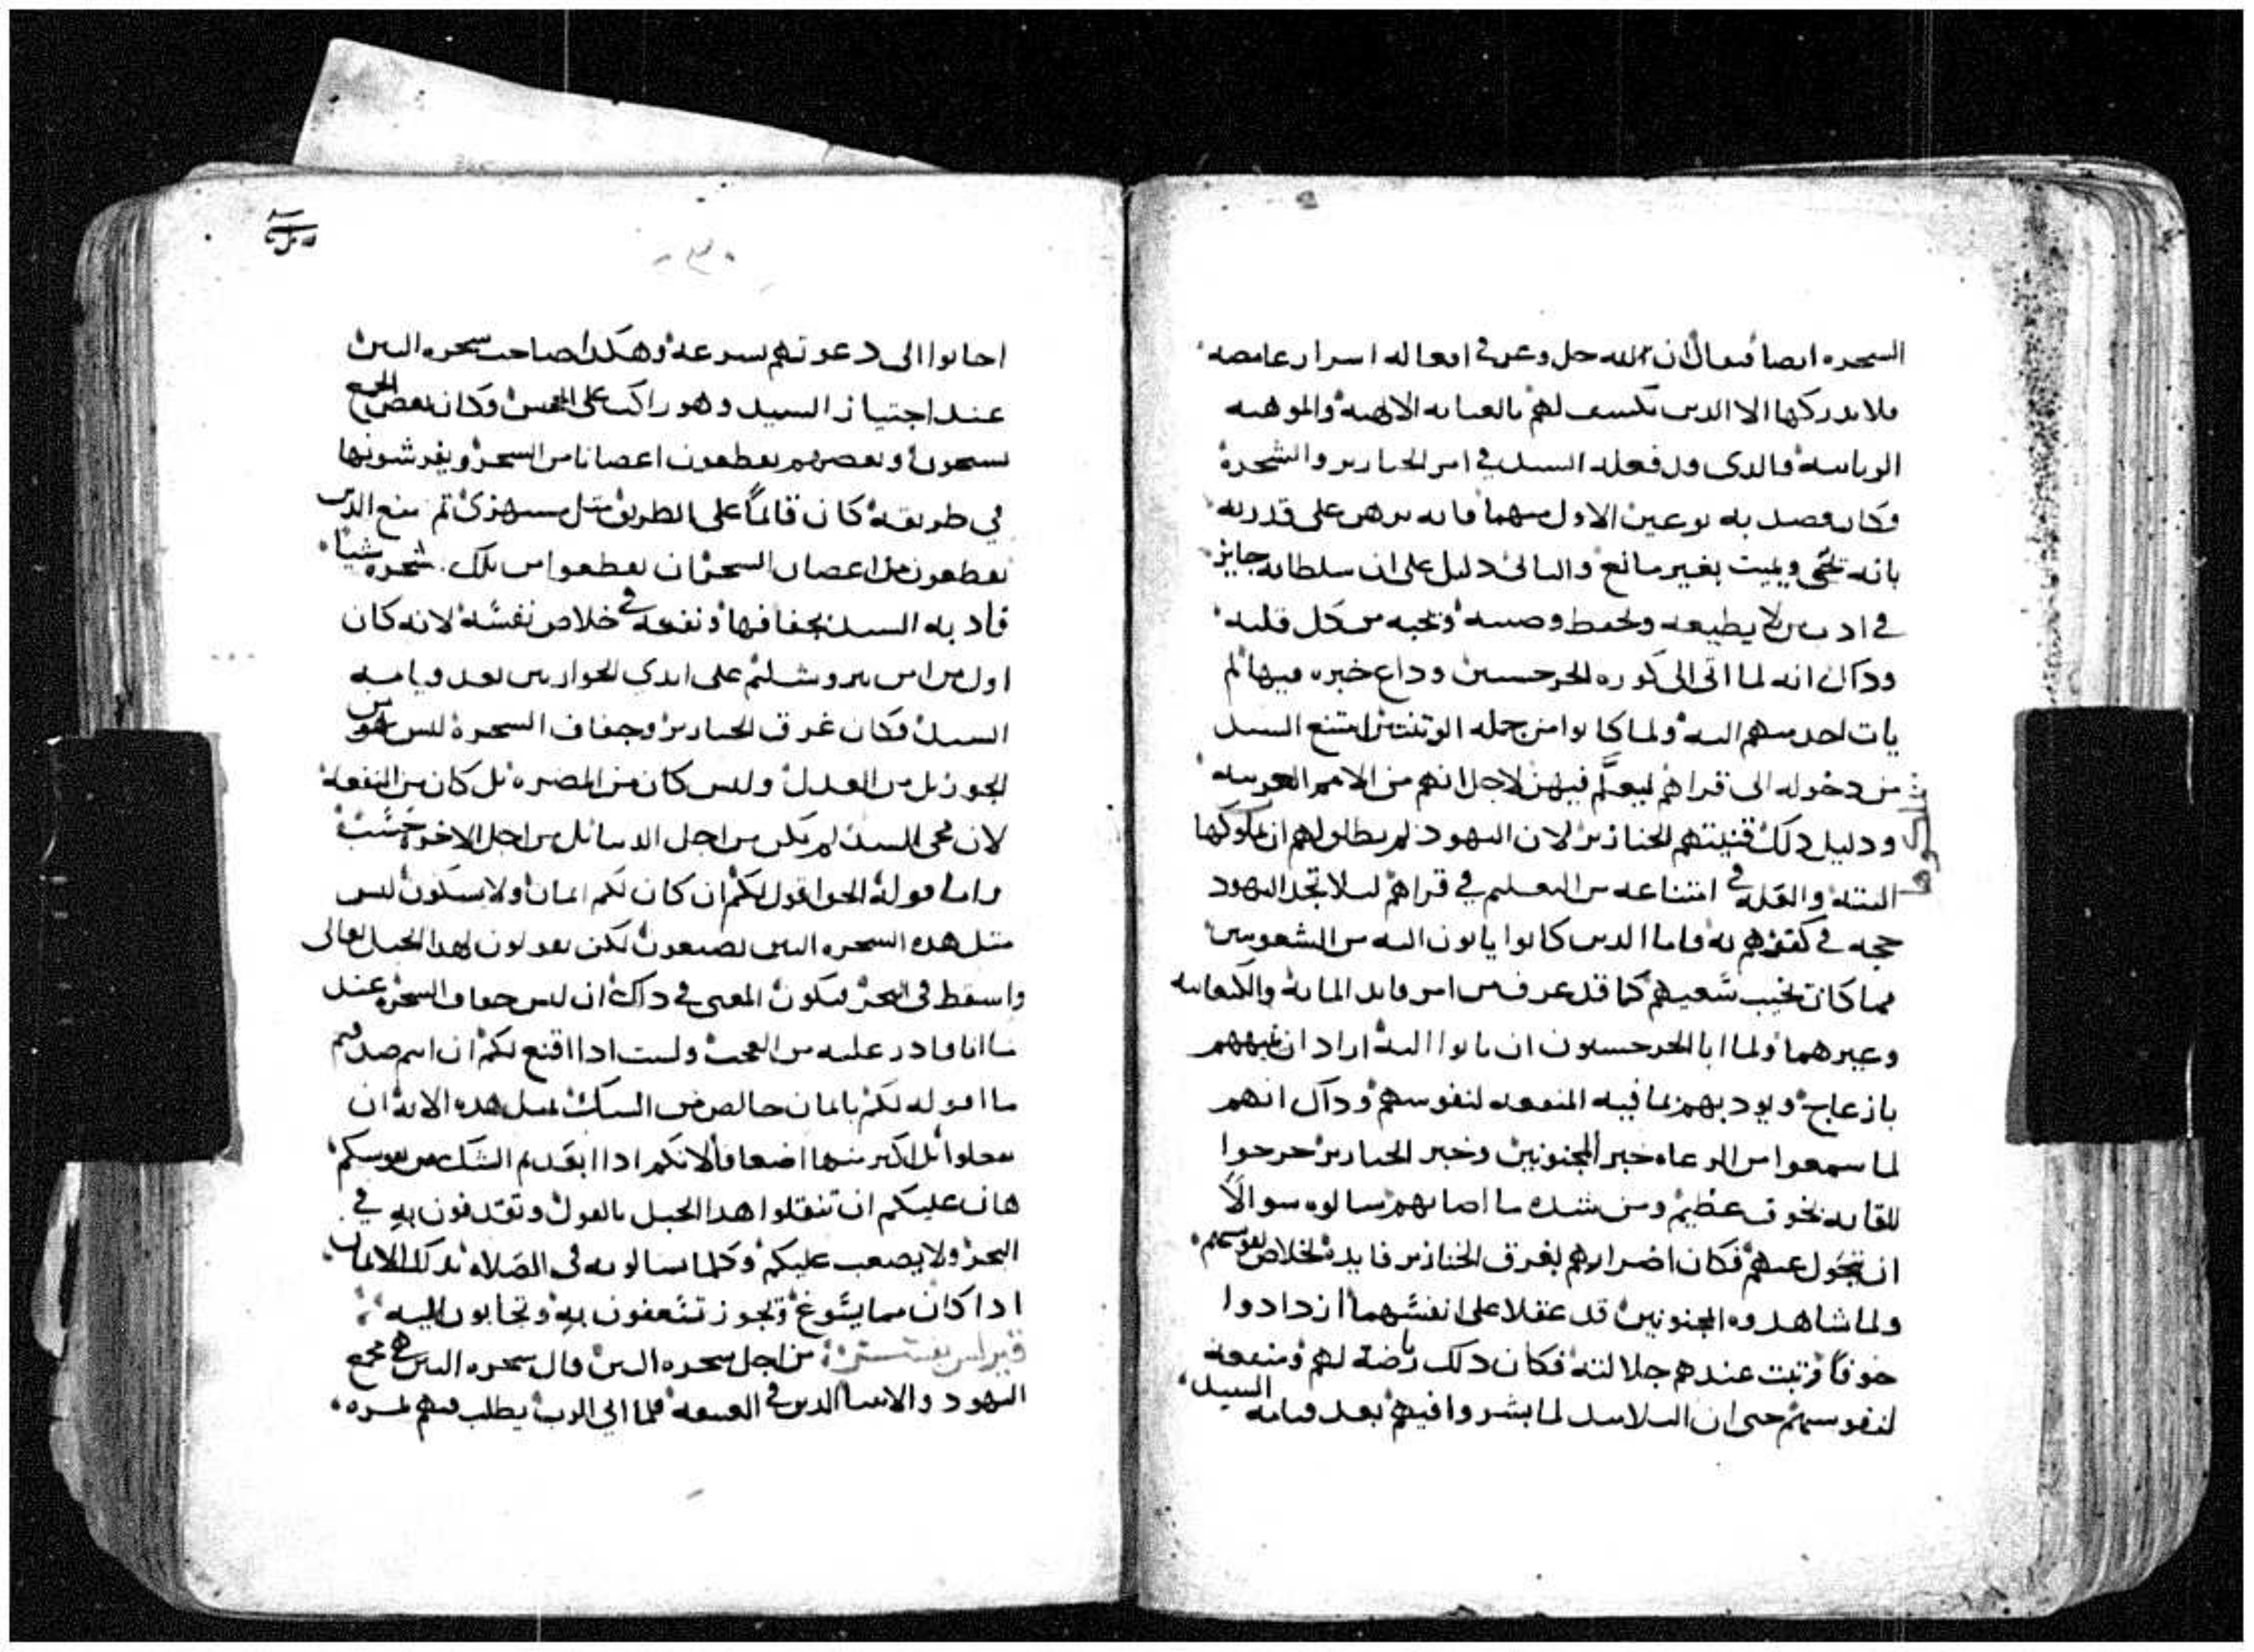 السجره ايضا فيقال ان الله جل وعز في افعاله اسرار غامضه
فلا يدركها الا الدين تكشف لهم بالعنايه الالاهيه والموهبه
الربانيه فالدي قد فعله السيد في امر الخنازير والشجرة
فكان قصد به نوعين الاول منهما فانه برهن على قدرته
بانه يحي ويميت بغير مانع والثاني دليل على ان سلطانه جايز
في ادب من لا يطيعه ويحفظ وصيته ويحبه من كل قلبه
ودآك انه لما اتى الى كوره الجرجسيين وداع خبره فيها لم
يات احد منهم اليه ولما كانوا من جمله الوتنيين امتنع السيد
من دخوله الى قراهم ليعلم فيهن لاجل انهم من الامم الغريبه
ودليل دلك قنيتهم الخنازير لان اليهود لم يطلق لهم ان يملكوها
البتة والعله في امتناعه من التعليم في قراهم ليلا تجد اليهود
حجه في كفرهم به فاما الدين كانوا ياتون اليه من الشعوبيين
فما كان يخيب سعيهم كما قد عرف من امر قايد المايه والكنعانيه
وغيرهما ولما ابا الجرجسيون ان ياتوا اليه اراد ان ينبههم
بازعاج ويودبهم بما فيه المنفعه لنفوسهم ودآك انهم
لما سمعوا من الرعاه خبر المجنونين وخبر الخنازير خرجوا
للقايه بخوف عظيم ومن شدة ما اصابهم سالوه سوالاً
ان يتحول عنهم فكان اضرارهم بغرق الخنازير فايدة لخلاص نفوسهم
ولما شاهدوه المجنونين قد عقلا على انفسهما ازدادوا
خوفاً وتبت عندهم جلالته فكان دلك رياضة لهم ومنفعه
لنفوسهم حتى ان التلاميد لما بشروا فيهم بعد قيامه السيد
اجابوا الى دعوتهم بسرعة وهكدا صاحب شجره التين
عند اجتياز السيد وهو راكب على الجحش وكان بعض الجمع
يسبحون وبعضهم يقطعون اغصانا من الشجر ويفرشونها
في طريقه كان قائماً على الطريق مثل مستهزئ ثم منع الدين
يقطعون من اغصان الشجر ان يقطعوا من تلك شجره شيئاً
فادبه السيد بجفافها ونفعه في خلاص نفسه لانه كان
اول من امن بيروشليم على ايدي الحواريين بعد قيامه
السيد فكان غرق الخنازير وجفاف الشجرة ليس هو من
الجور بل من العدل وليس كان من المضره بل كان من المنفعه
لان مجى السيد لم يكن من اجل الدنيا بل من اجل الاخرة حسب
واما قوله الحق اقول لكم ان كان لكم ايمان ولا تشكون ليس
مثل هده الشجره التين تصنعون لكن تقولون لهدا الجبل تعالى
واسقط في البحر فيكون المعنى في داك ان ليس جفاف الشجره عند
ما انا قادر عليه من العجب ولست ادا اقنع لكم ان انتم صدقتم
ما اقوله لكم بايمان خالص من الشك لمثل هده الايه ان
تفعلوا بل اكبر منها اضعافاً لانكم ادا ابعدتم الشك من نفوسكم
هان عليكم ان تنقلوا هدا الجبل بالقول وتقدفون به في
البحر ولا يصعب عليكم وكلما تسالونه في الصلاه بدلك الايمان
ادا كان مما يسوغ ويجوز تسعفون به وتجابون اليه
من اجل شجره التين قال شجره التين هي مجمع
اليهود والانبيا الدين في العتيقه فلما اتى الرب يطلب منهم تمره